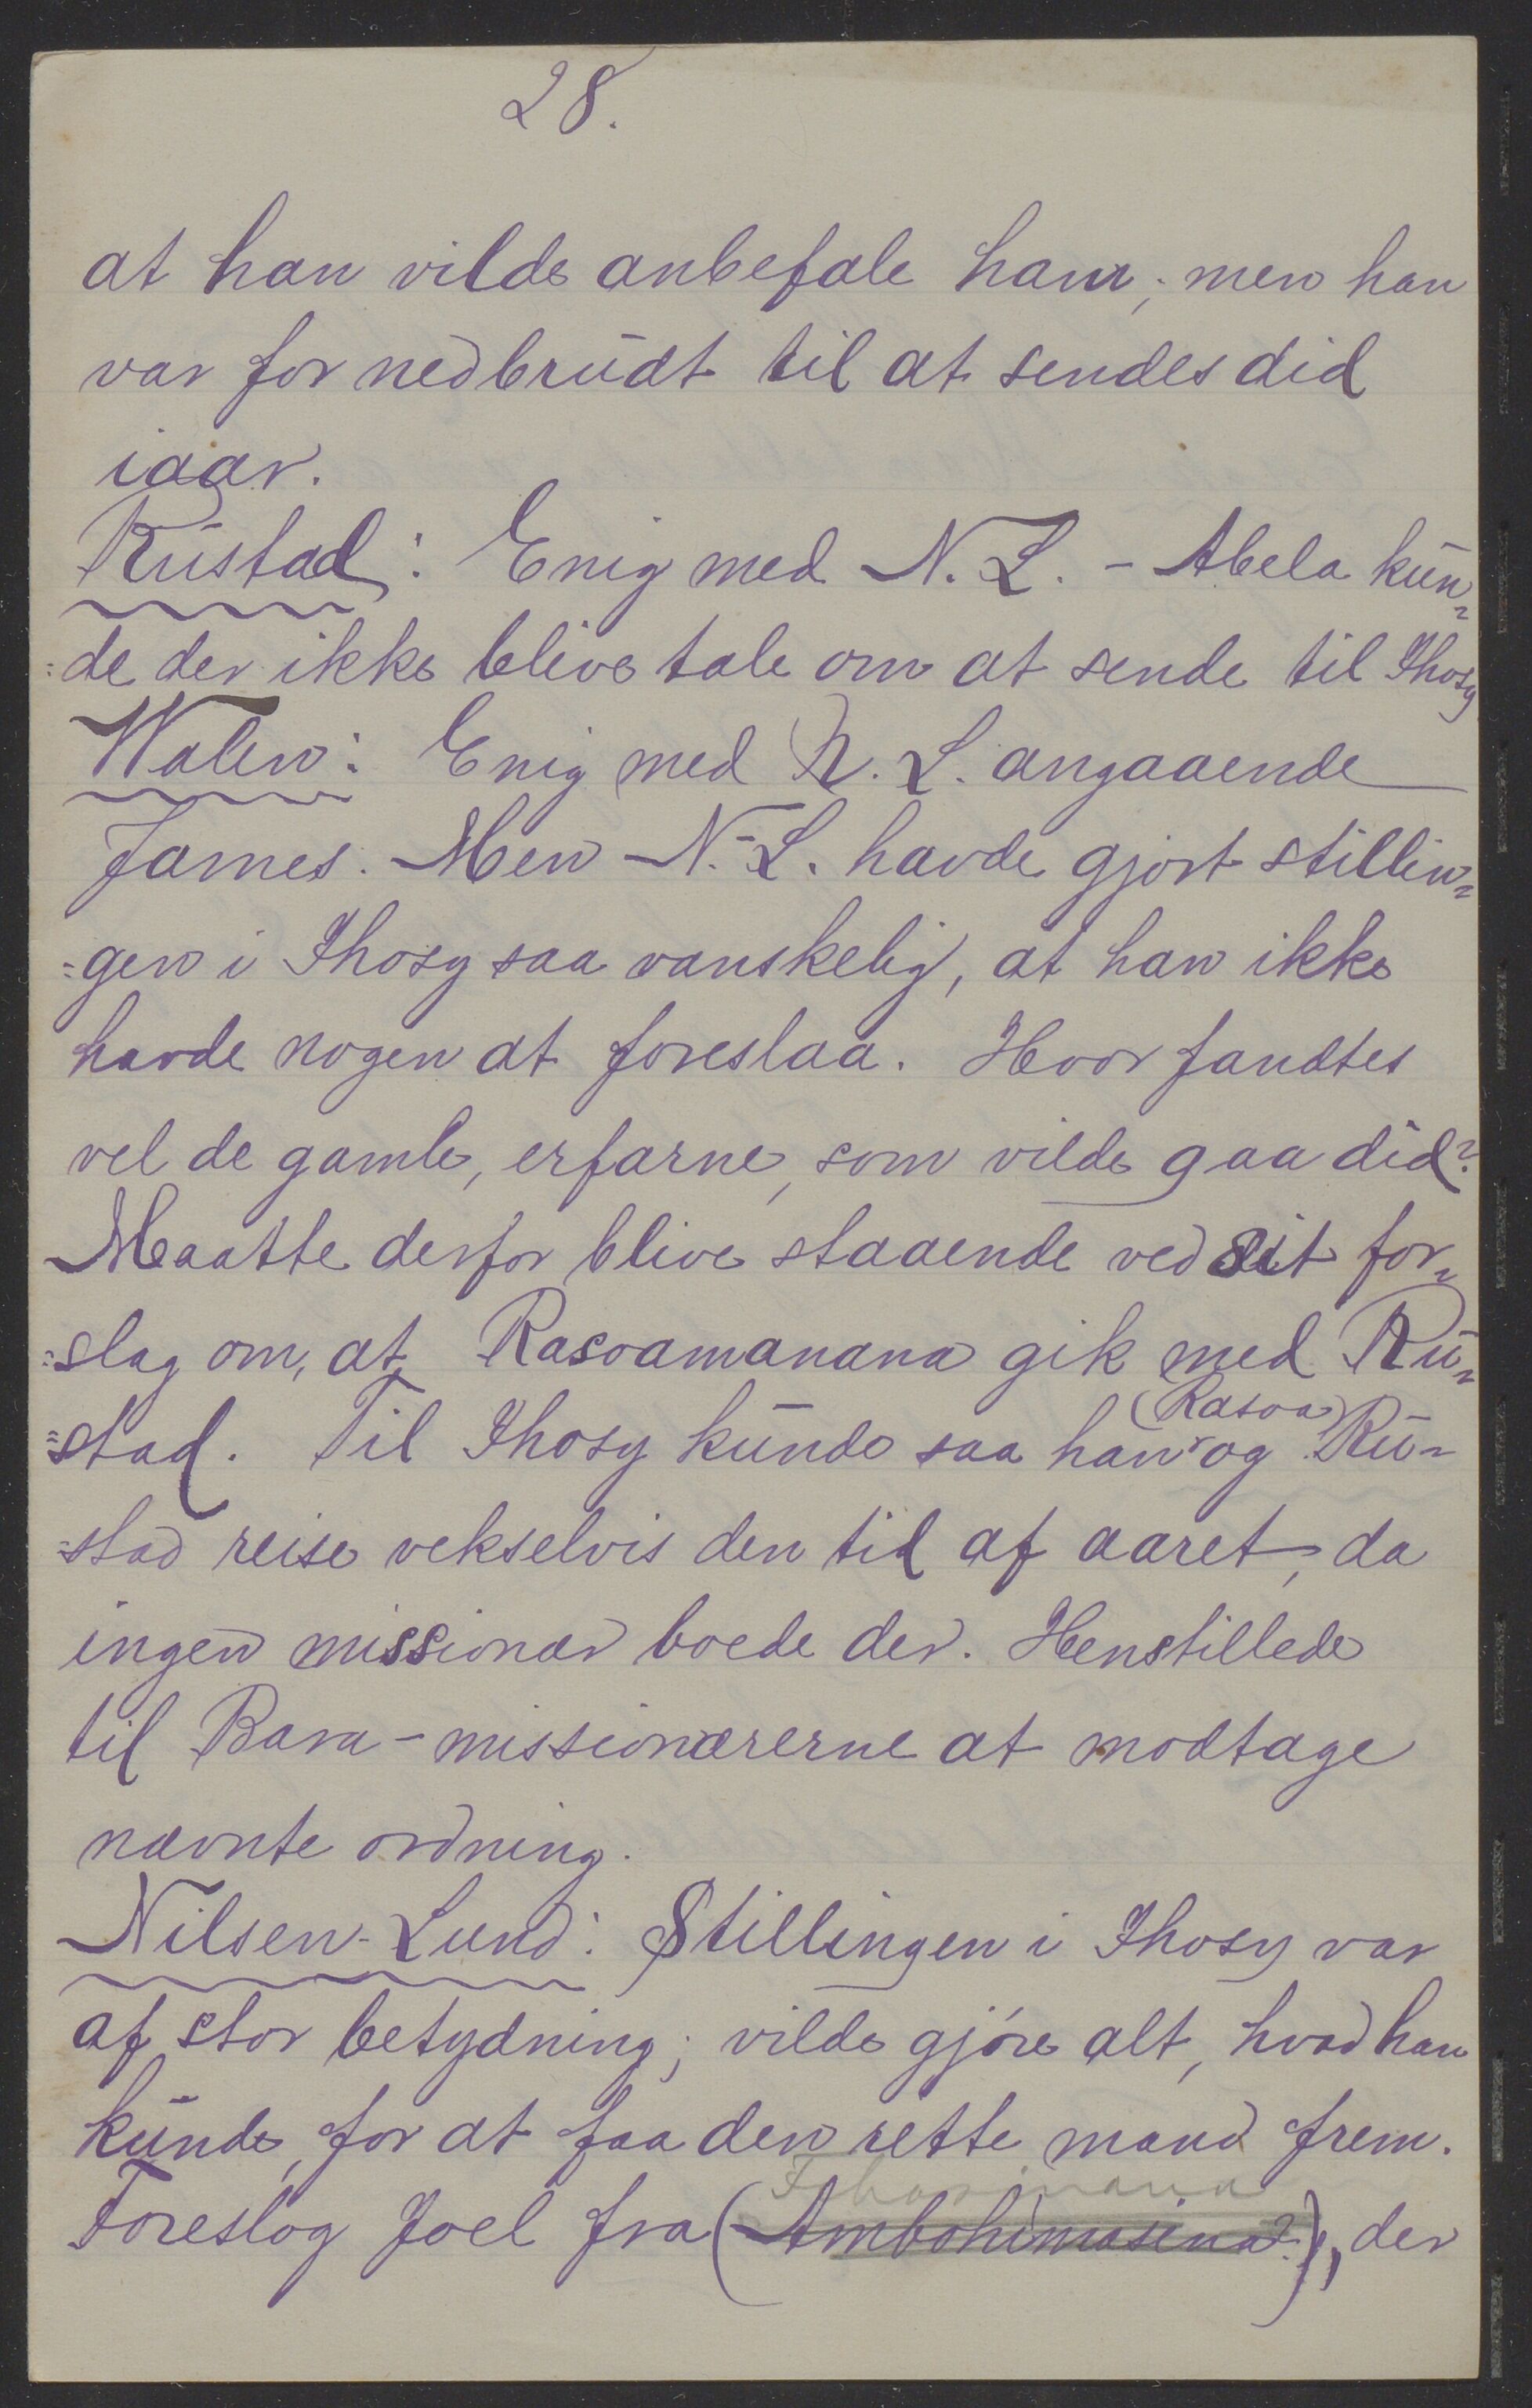 28.
at han vilde anbefale ham; men han
var for nedbrudt til at sendes did
iaar.
Rustad: Enig med N. L. - Abela kun=
=de der ikke blive tale om at sende til Ihosy
Walen: Enig med N. L. angaaende
James. Men N.-L. havde gjort stillin=
=gen i Ihosy saa vanskelig, at han ikke
havde nogen at foreslaa. Hvor fandtes
vel de gamle, erfarne, som vilde gaa did?
Maatte derfor blive staaende ved sit for=
=slag om, at Rasoamanana gik med Ru=
(Rasoa)
=stad. Til Ihosy kunde saa han og Ru=
=stad reise vekselvis den tid af aaret, da
ingen missionær boede der. Henstillede
til Bara-missionærerne at modtage
nævnte ordning.
Nilsen-Lund: Stillingen i Ihosy var
af stor betydning; vilde gjøre alt, hvad han
kunde, for at faa den rette mand frem.
Foreslog Joel fra (Ambohimasina?), der